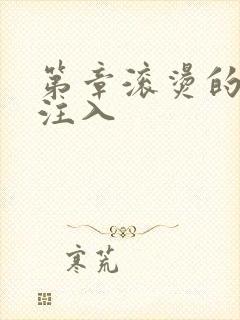 第章滚烫的
注入
寒荒